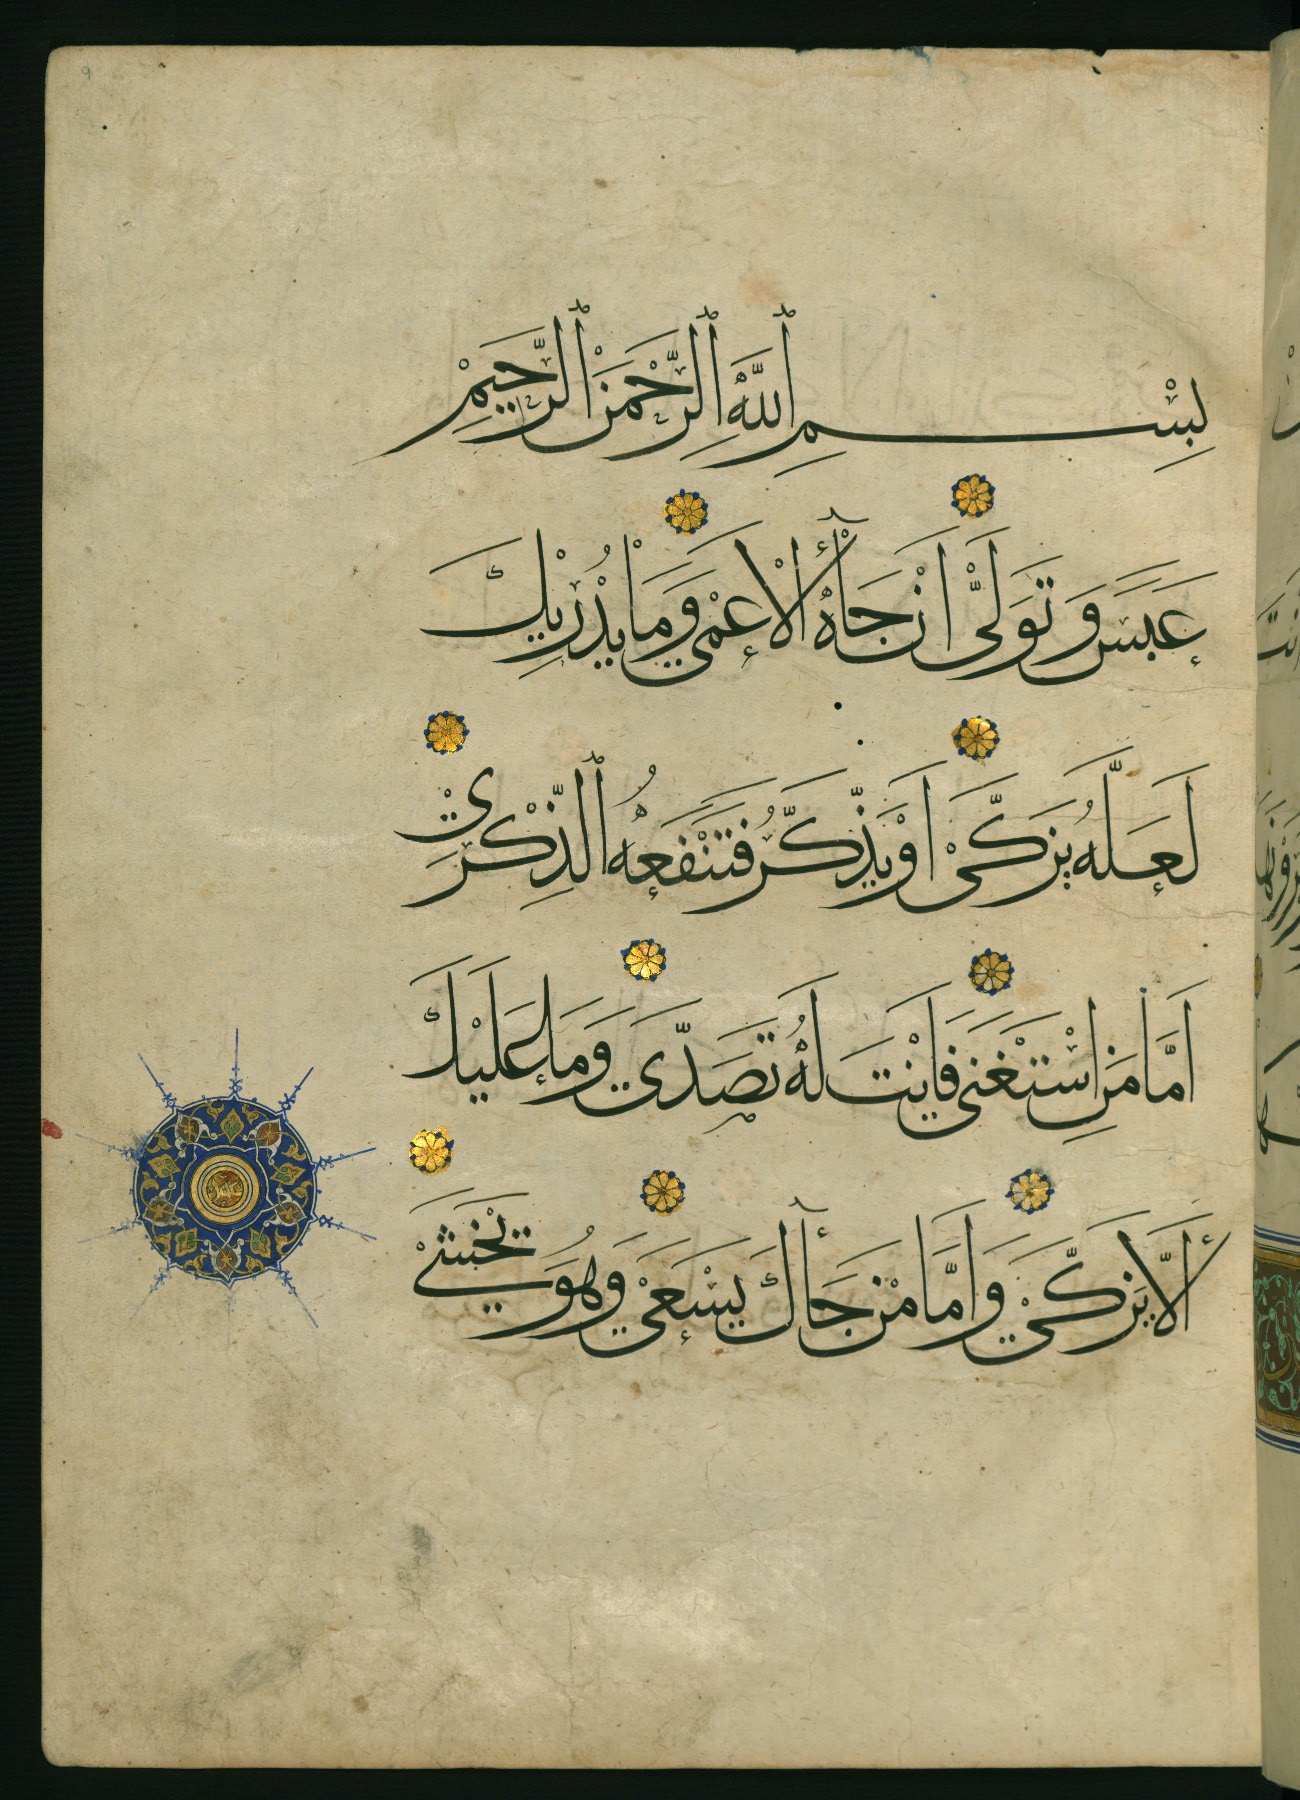 بِسْمِ ٱللَّهِ ٱلرَّحْمَنِ ٱلرَّحِيمِ
عَبَسَ وَتَوَلَّىٰ اَنْ جَآءَهُ ٱلْاَعْمَى وَمَا يُدْرِيكَ
لَعَلَّهُ يَزَّكَّى اَوْ يَذَّكَّرُ فَتَنْفَعَهُ ٱلذِّكْرَى
اَمَّا مَنِ اسْتَغْنَى فَاَنْتَ لَهُ تَصَدَّى وَمَا عَلَيْكَ
اَلَّا يَزَّكَّى وَاَمَّا مَنْ جَآءَكَ يَسْعَى وَهُوَ يَخْشَى